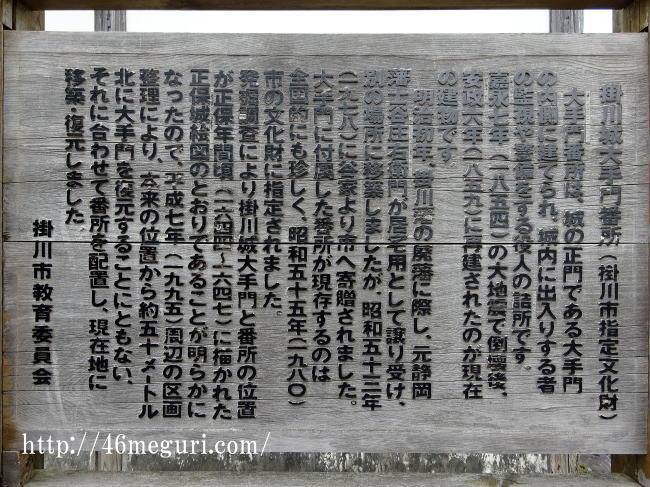 掛川城大手門番所（掛川市指定文化財）
大手門番所は、城の正門である大手門
の内側に建てられ、城内に出入りする者
の監視や警備をする役人の詰所です。
嘉永七年（一八五四）の大地震で倒壊後、
安政六年（一八五九）に再建されたのが現在
の建物です。
明治初年、掛川藩の廃藩に際し、元静岡
藩士谷庄右衛門が居宅用として譲り受け、
別の場所に移築しましたが、昭和五十三年
（一九七八）に谷家より市へ寄贈されました。
大手門に付属した番所が現存するのは
全国的にも珍しく、昭和五十五年（一九八〇）
市の文化財に指定されました。
発掘調査により掛川城大手門と番所の位置
が正保年間頃（一六四四～一六四七）に描かれた
正保城絵図のとおりであることが明らかに
なったので、平成七年（一九九五）周辺の区画
整理により、本来の位置から約五十メートル
北に大手門を復元することにともない、
それに合わせて番所を配置し、現在地に
移築・復元しました。
掛川市教育委員会
http://46meguri.com/